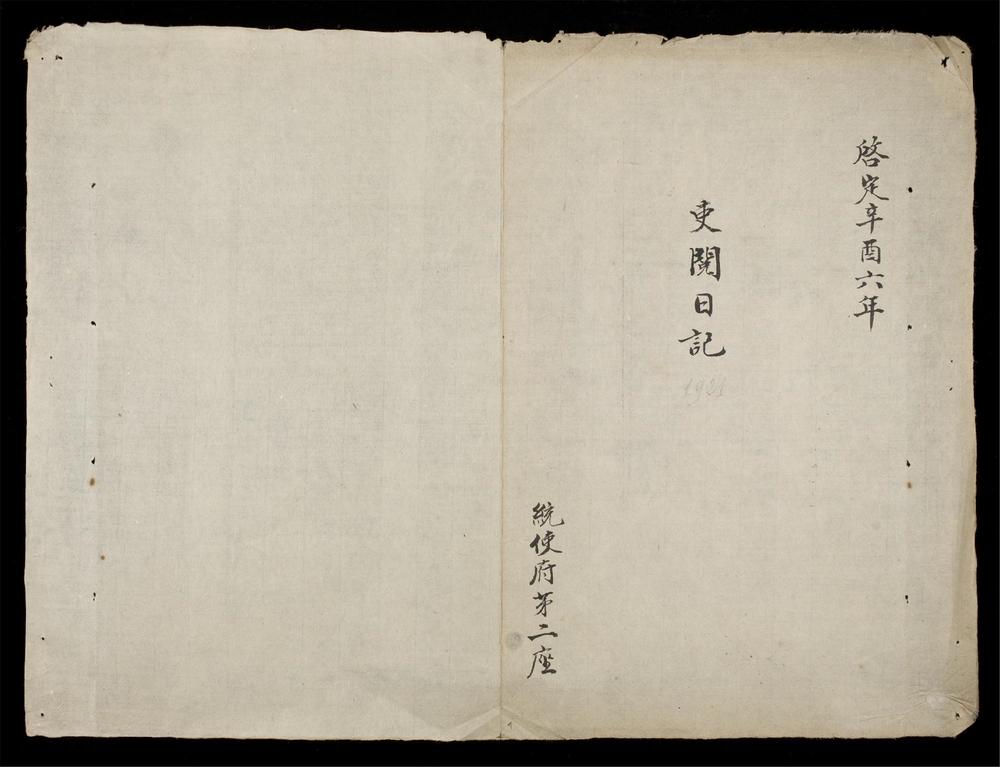 啓定辛酉六年
吏閱日記
1921
統使府第二座